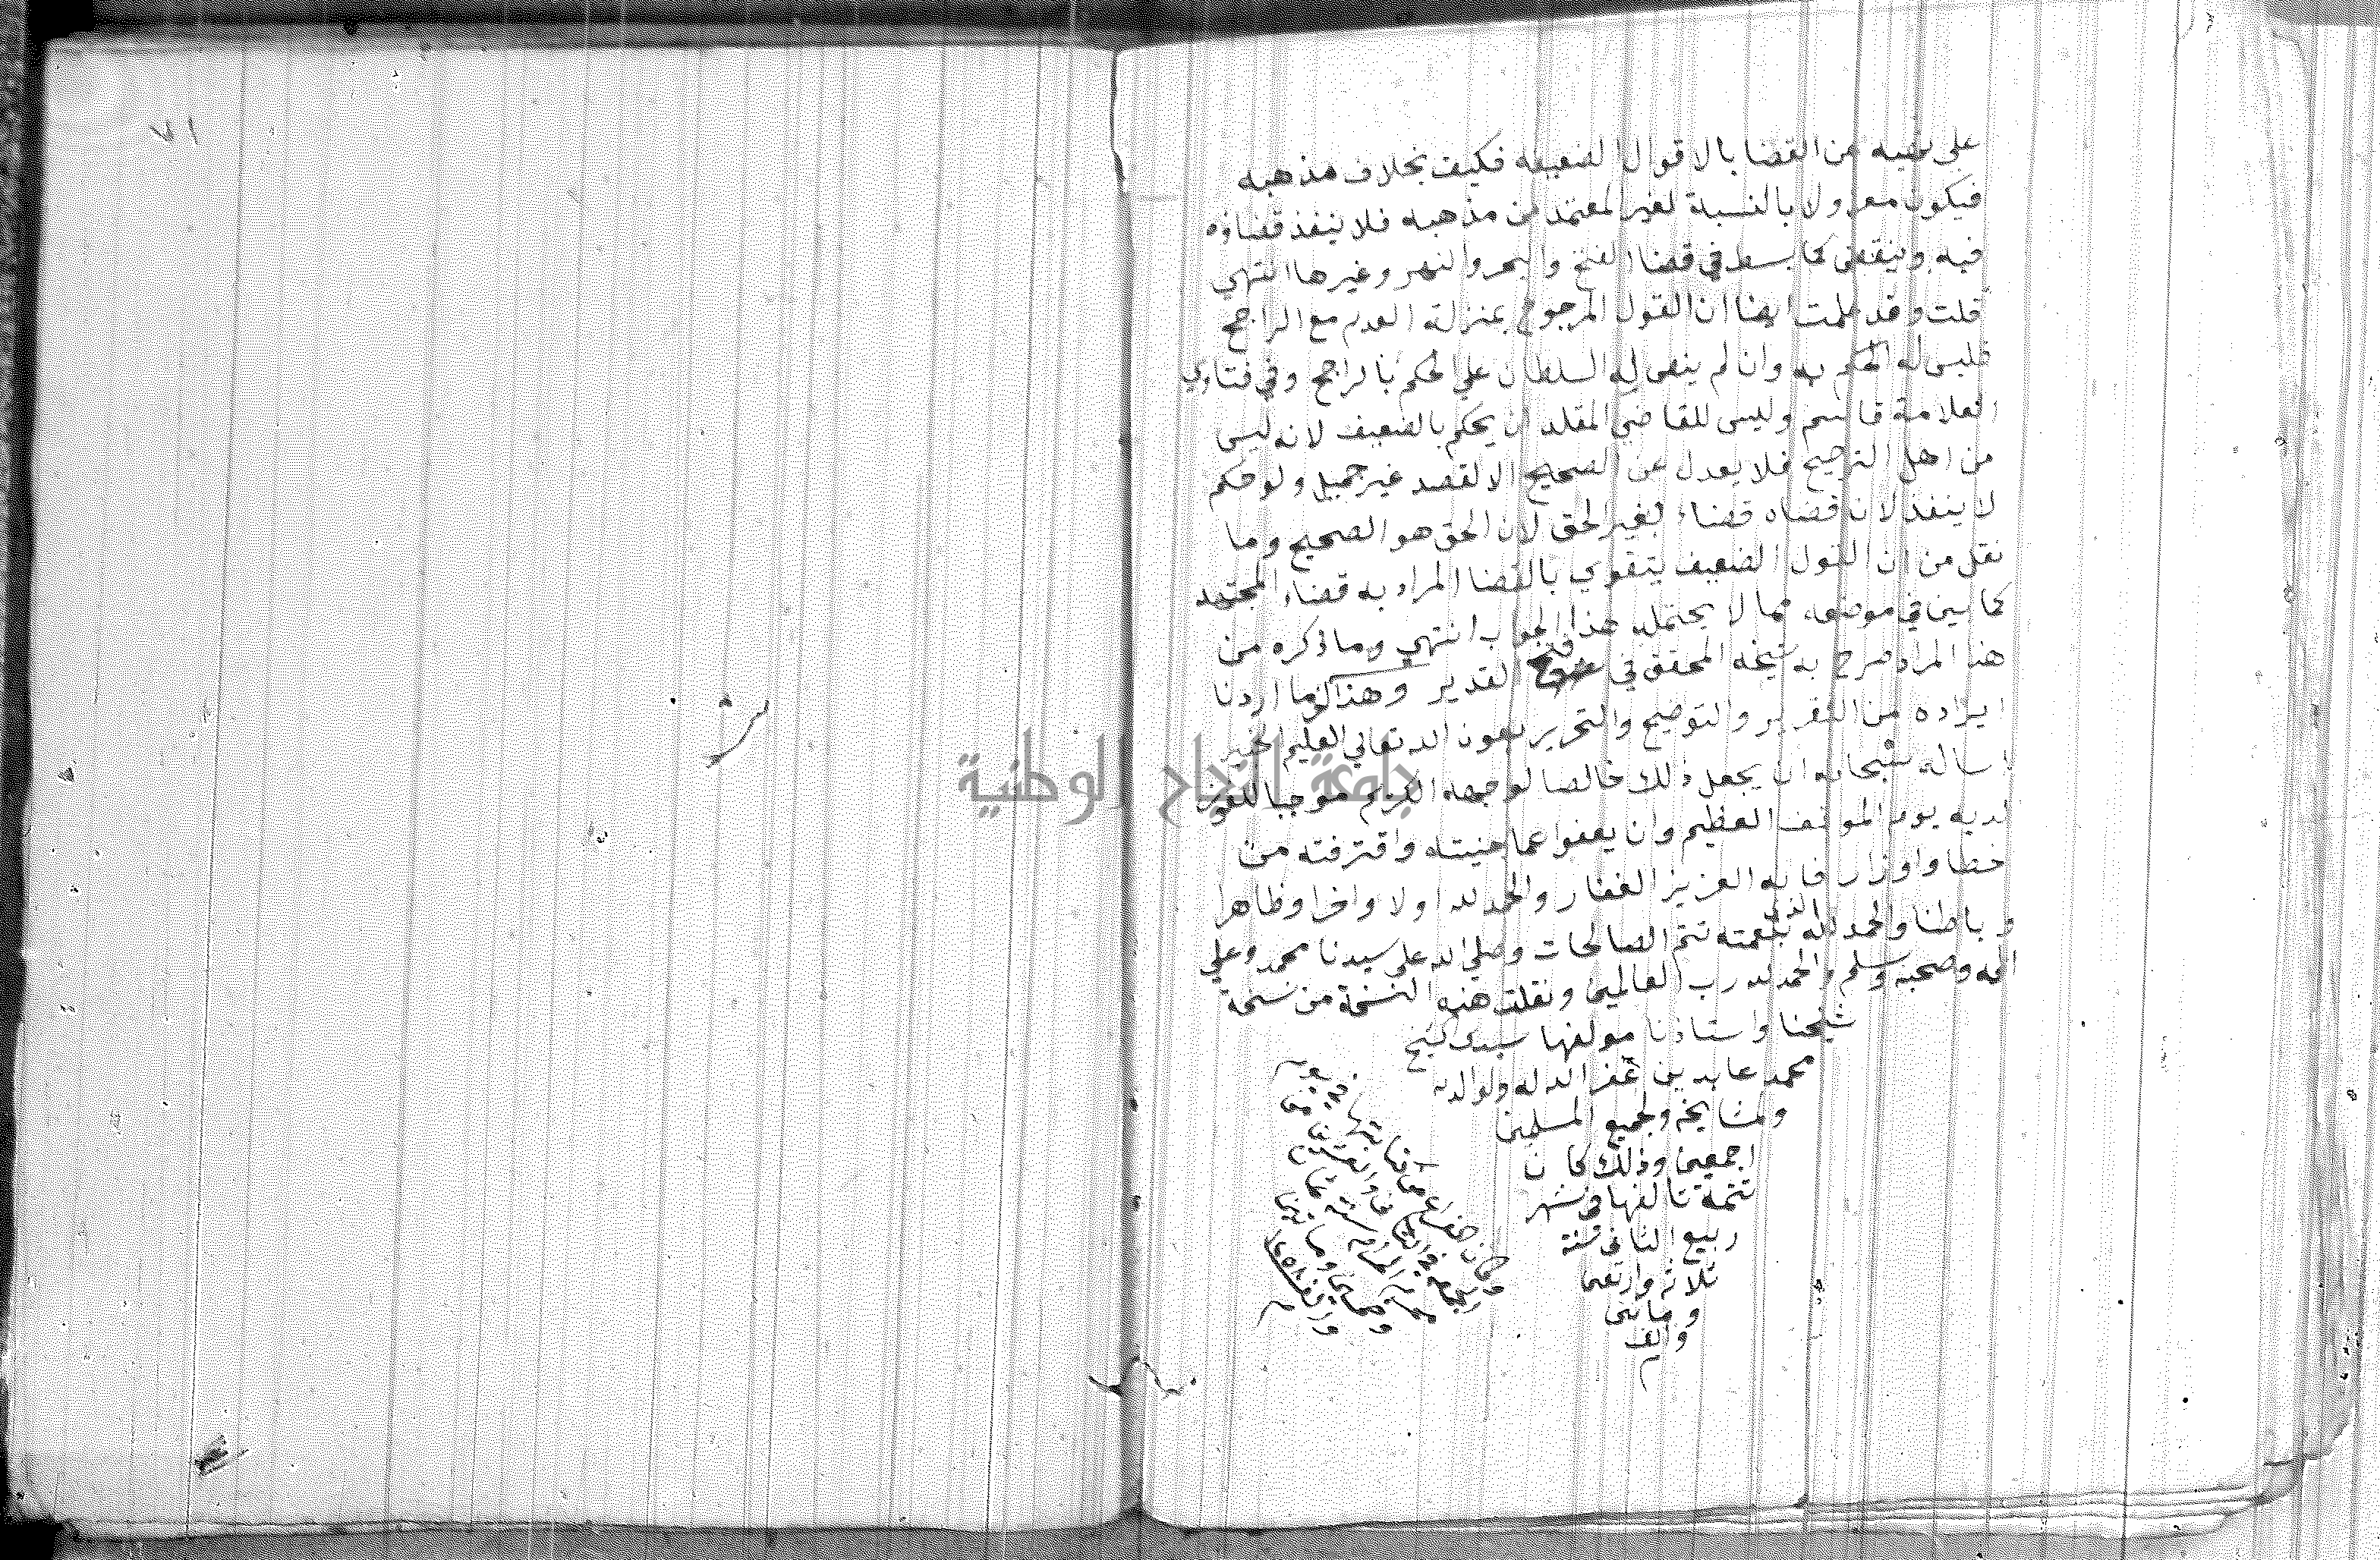 على نهيه عن القضا بالاقوال الضعيفه فكيف بخلاف مذهبه
فيكون معزولا بالنسبة لغير المعتمد من مذهبه فلا ينفذ قضاؤه
فيه وينقض كما بسط في قضا الفتح والبحر والنهر وغيرها انتهي
قلت وقد علمت ايضا ان القول المرجوح بمنزلة العدم مع الراجح
فليس له الحكم به وان لم ينص له السلطان علي الحكم بالراجح وفي فتاوي
العلامة قاسم وليس للقاضي المقلد ان يحكم بالضعيف لانه ليس
من اهل الترجيح فلا يعدل عن الصحيح الا لقصد غير جميل ولو حكم
لا ينفذ لان قضاه قضاء بغير الحق لان الحق هو الصحيح وما
نقل من ان القول الضعيف يتقوي بالقضا المراد به قضاء المجتهد
كما بين في موضعه مما لا يحتمله هذا الجواب انتهي وما ذكره من
هذا المراد صرح به شيخه المحقق في فتح القدير وهذا اخر ما اردنا
ايراده من التقرير والتوضيح والتحرير بعون الله تعالي العليم الخبير
اساله سبحانه ان يجعل ذلك خالصا لوجهه الكريم موجبا للفوز
لديه يوم الموقف العظيم وان يعفوا عما جنيته واقترفته من
خطا واوزار فانه العزيز الغفار والحمد لله اولا واخرا وظاهرا
وباطنا والحمد لله الذي بنعمته تتم الصالحات وصلي الله على سيدنا محمد وعلي
اله وصحبه وسلم والحمد لله رب العالمين ونقلت هذه النسخة من نسخة
شيخنا واستاذنا مولفها سيدي الشيخ
محمد عابدين غفر الله له ولوالديه
ومشايخه ولجميع المسلمين
اجمعين وذلك كان
تتمة تاليفها في شهر
ربيع الثاني سنة
ثلاثة واربعين
ومايتين
والف
م
وكان
في
سنة
ثمان
ومايتين
والف
١٢٥٨
٧١
جامعة النجاح الوطنية